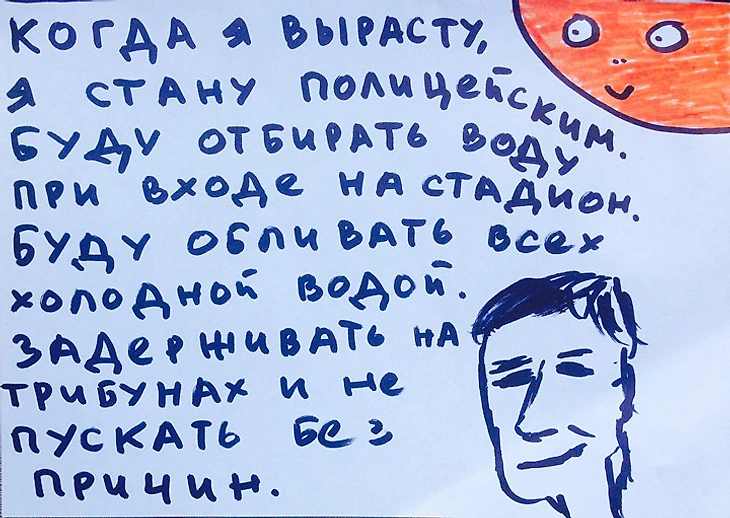 КОГДА Я ВЫРАСТУ,
Я СТАНУ ПОЛИЦЕЙСКИМ.
БУДУ ОТБИРАТЬ ВОДУ
ПРИ ВХОДЕ НА СТАДИОН.
БУДУ ОБЛИВАТЬ ВСЕХ
ХОЛОДНОЙ ВОДОЙ.
ЗАДЕРЖИВАТЬ НА
ТРИБУНАХ И НЕ
ПУСКАТЬ БЕЗ
ПРИЧИН.